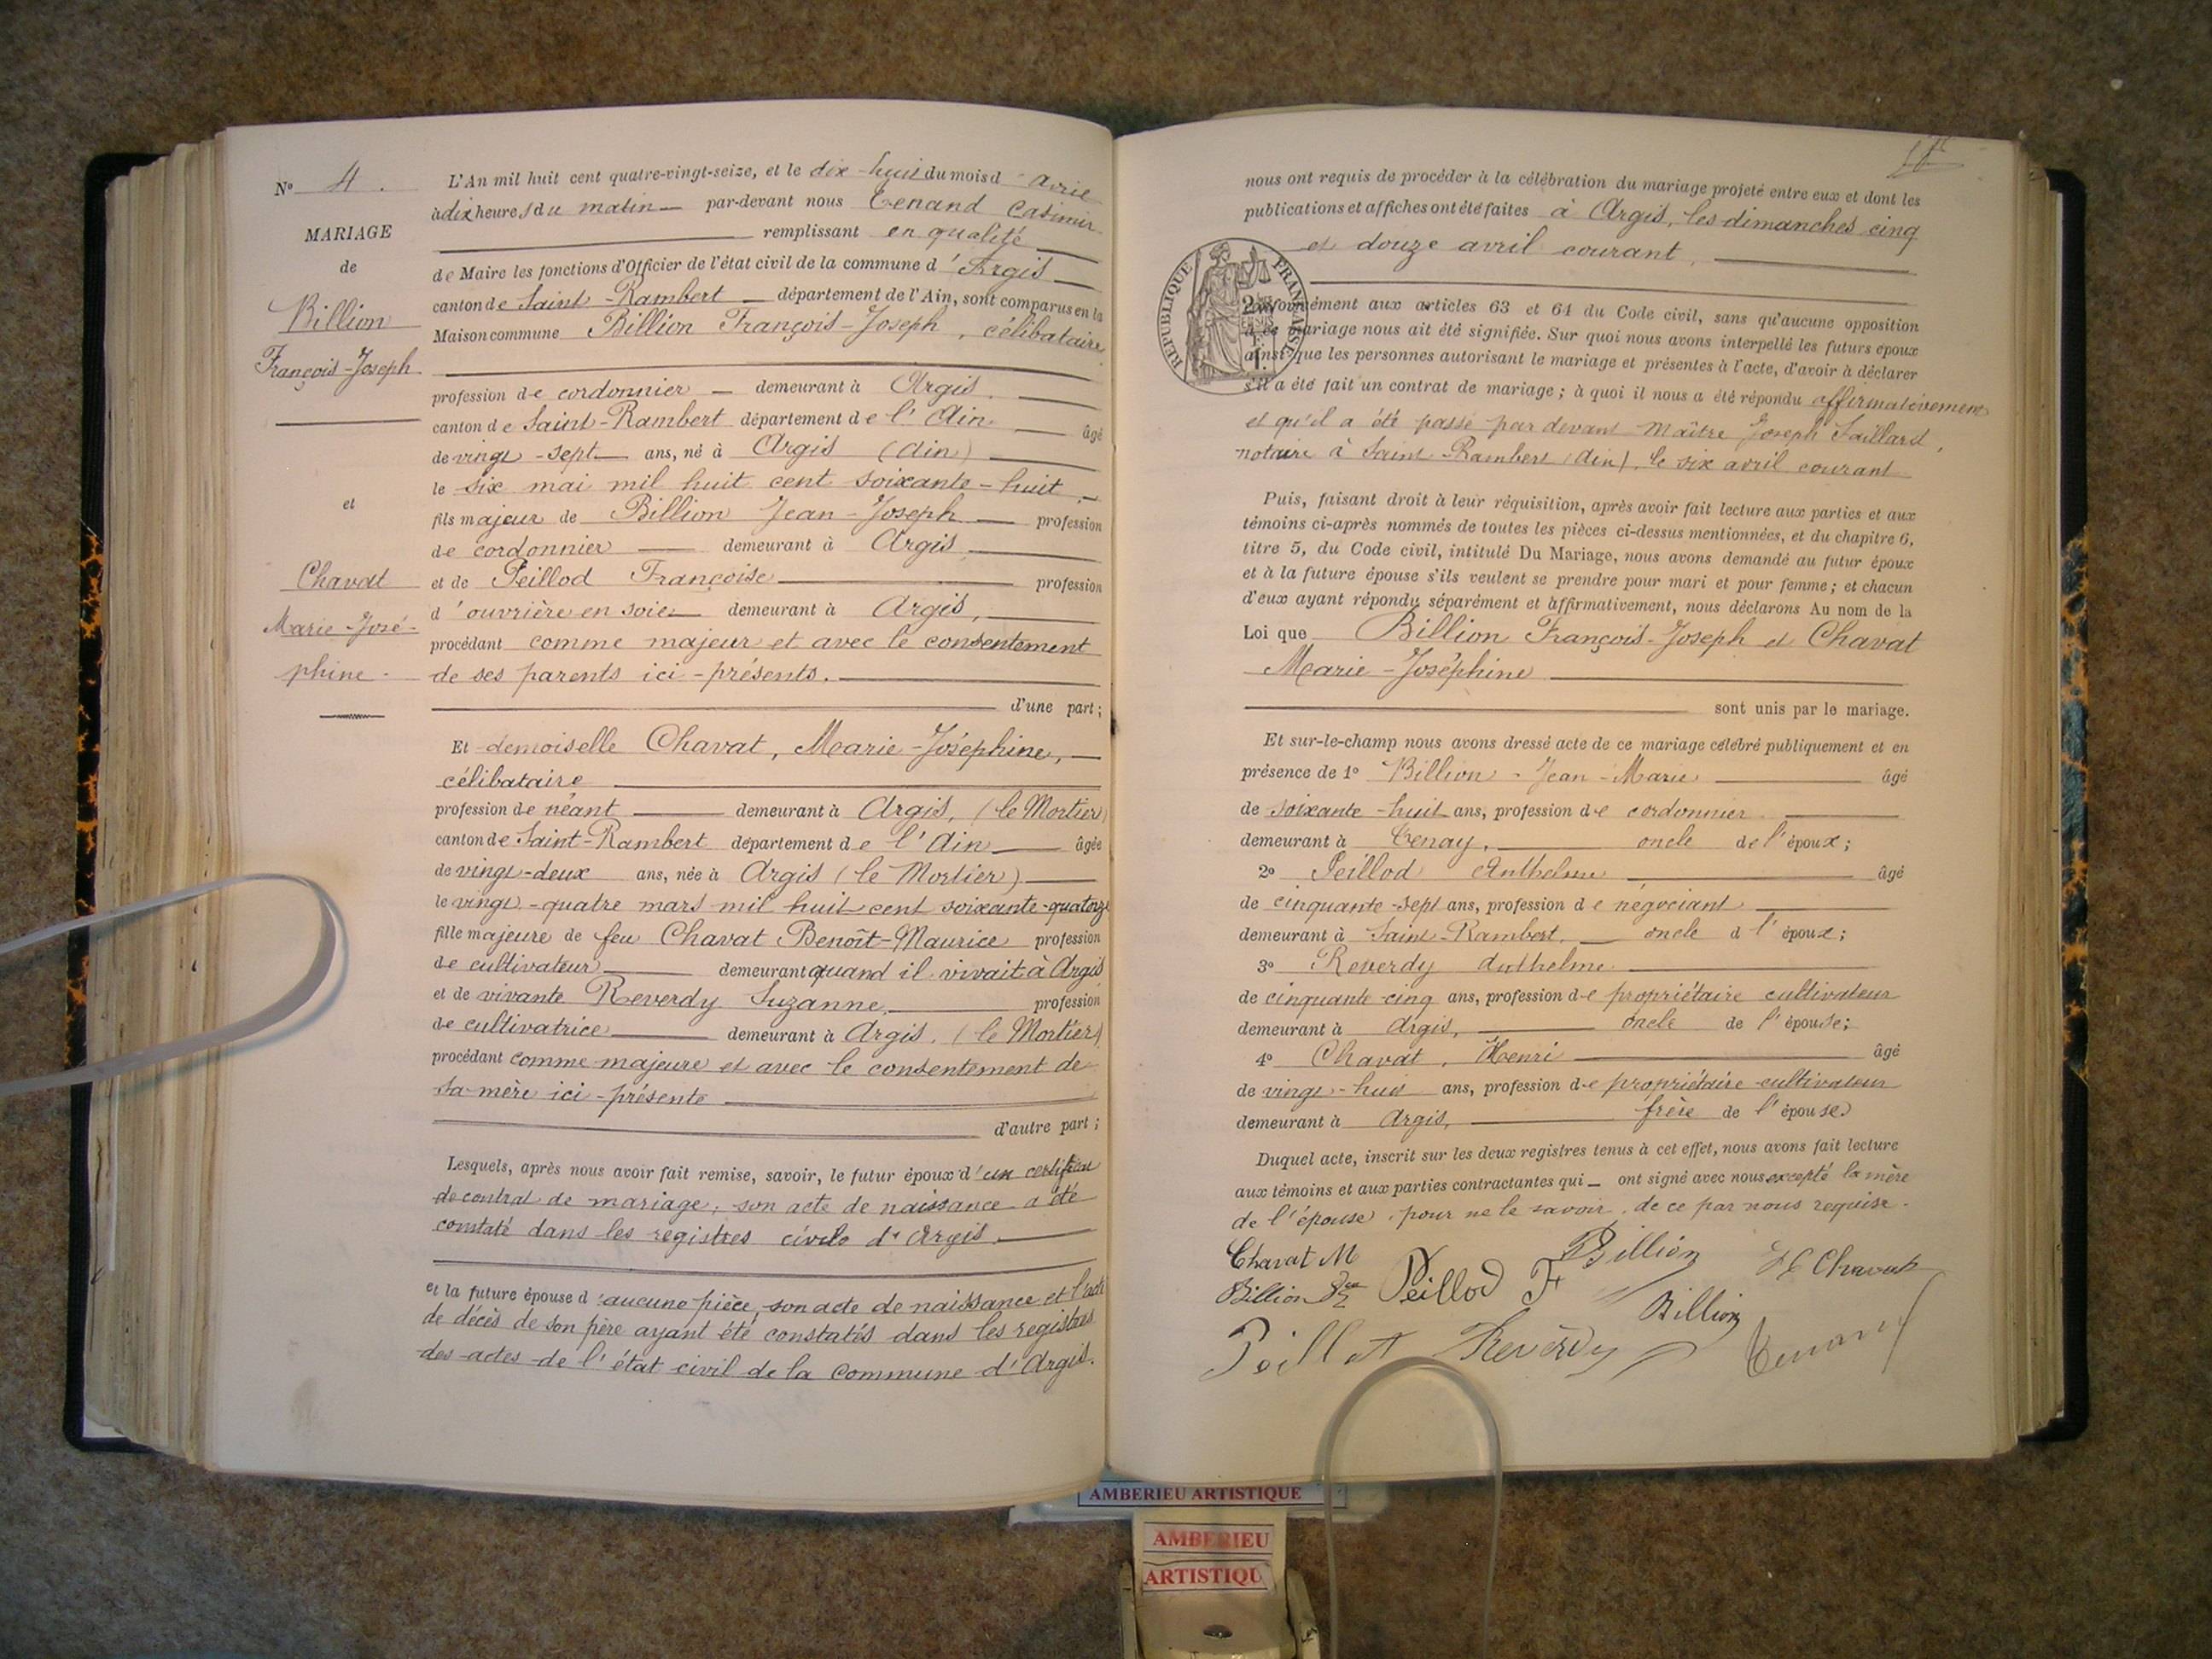 N° 4.
MARIAGE
de
Billion
François-Joseph
et
Chavat
Marie-José-
phine.
L'An mil huit cent quatre-vingt-seize, et le dix-huit du mois d'avril
à dix heures du matin par-devant nous Tenand Casimir
remplissant en qualité
de Maire les fonctions d'Officier de l'état civil de la commune d'Argis
canton de Saint-Rambert département de l'Ain, sont comparus en la
Maison commune Billion François-Joseph, célibataire
profession de cordonnier demeurant à Argis.
canton de Saint-Rambert département de l'Ain âgé
de vingt-sept ans, né à Argis (Ain)
le six mai mil huit cent soixante-huit
fils majeur de Billion Jean-Joseph profession
de cordonnier demeurant à Argis
et de Peillod Françoise profession
d'ouvrière en soie demeurant à Argis,
procédant comme majeur et avec le consentement
de ses parents ici-présents.
d'une part;
Et demoiselle Chavat, Marie-Joséphine,
célibataire
profession de néant demeurant à Argis, (le Mortier)
canton de Saint-Rambert département de l'Ain âgée
de vingt-deux ans, née à Argis (le Mortier)
le vingt-quatre mars mil huit cent soixante-quatorze
fille majeure de feu Chavat Benoît-Maurice profession
de cultivateur demeurant quand il vivait à Argis
et de vivante Reverdy Suzanne, profession
de cultivatrice demeurant à Argis, (le Mortier)
procédant comme majeure et avec le consentement de
sa mère ici-présente
d'autre part;
Lesquels, après nous avoir fait remise, savoir, le futur époux d'un certificat
de contrat de mariage; son acte de naissance a été
constaté dans les registres civils d'Argis.
et la future épouse d'aucune pièce, son acte de naissance et l'acte
de décès de son père ayant été constatés dans les registres
des actes de l'état civil de la commune d'Argis.
nous ont requis de procéder à la célébration du mariage projeté entre eux et dont les
publications et affiches ont été faites à Argis, les dimanches cinq
et douze avril courant,
REPUBLIQUE FRANÇAISE
conformément aux articles 63 et 64 du Code civil, sans qu'aucune opposition
à ce mariage nous ait été signifiée. Sur quoi nous avons interpellé les futurs époux
ainsi que les personnes autorisant le mariage et présentes à l'acte, d'avoir à déclarer
s'il a été fait un contrat de mariage; à quoi il nous a été répondu affirmativement
et qu'il a été passé par devant Maître Joseph Faillard,
notaire à Saint-Rambert (Ain), le six avril courant
Puis, faisant droit à leur réquisition, après avoir fait lecture aux parties et aux
témoins ci-après nommés de toutes les pièces ci-dessus mentionnées, et du chapitre 6,
titre 5, du Code civil, intitulé Du Mariage, nous avons demandé au futur époux
et à la future épouse s'ils veulent se prendre pour mari et pour femme; et chacun
d'eux ayant répondu séparément et affirmativement, nous déclarons Au nom de la
Loi que Billion François-Joseph et Chavat
Marie-Joséphine
sont unis par le mariage.
Et sur-le-champ nous avons dressé acte de ce mariage célébré publiquement et en
présence de 1° Billion Jean-Marie âgé
de soixante-huit ans, profession de cordonnier
demeurant à Tenay, oncle de l'époux;
2° Peillod Anthelme âgé
de cinquante-sept ans, profession de négociant
demeurant à Saint-Rambert, oncle d l'époux;
3° Reverdy Anthelme
de cinquante cinq ans, profession de propriétaire cultivateur
demeurant à Argis, oncle de l'épouse;
4° Chavat, Henri âgé
de vingt-huit ans, profession de propriétaire-cultivateur
demeurant à Argis, frère de l'épouse
Duquel acte, inscrit sur les deux registres tenus à cet effet, nous avons fait lecture
aux témoins et aux parties contractantes qui ont signé avec nous excepté la mère
de l'épouse, pour ne le savoir, de ce par nous requise.
Chavat M Billion H Chavat
Billion Peillod F Billion
Peillot Reverdy Tenand
AMBERIEU ARTISTIQUE
AMBERIEU
ARTISTIQU